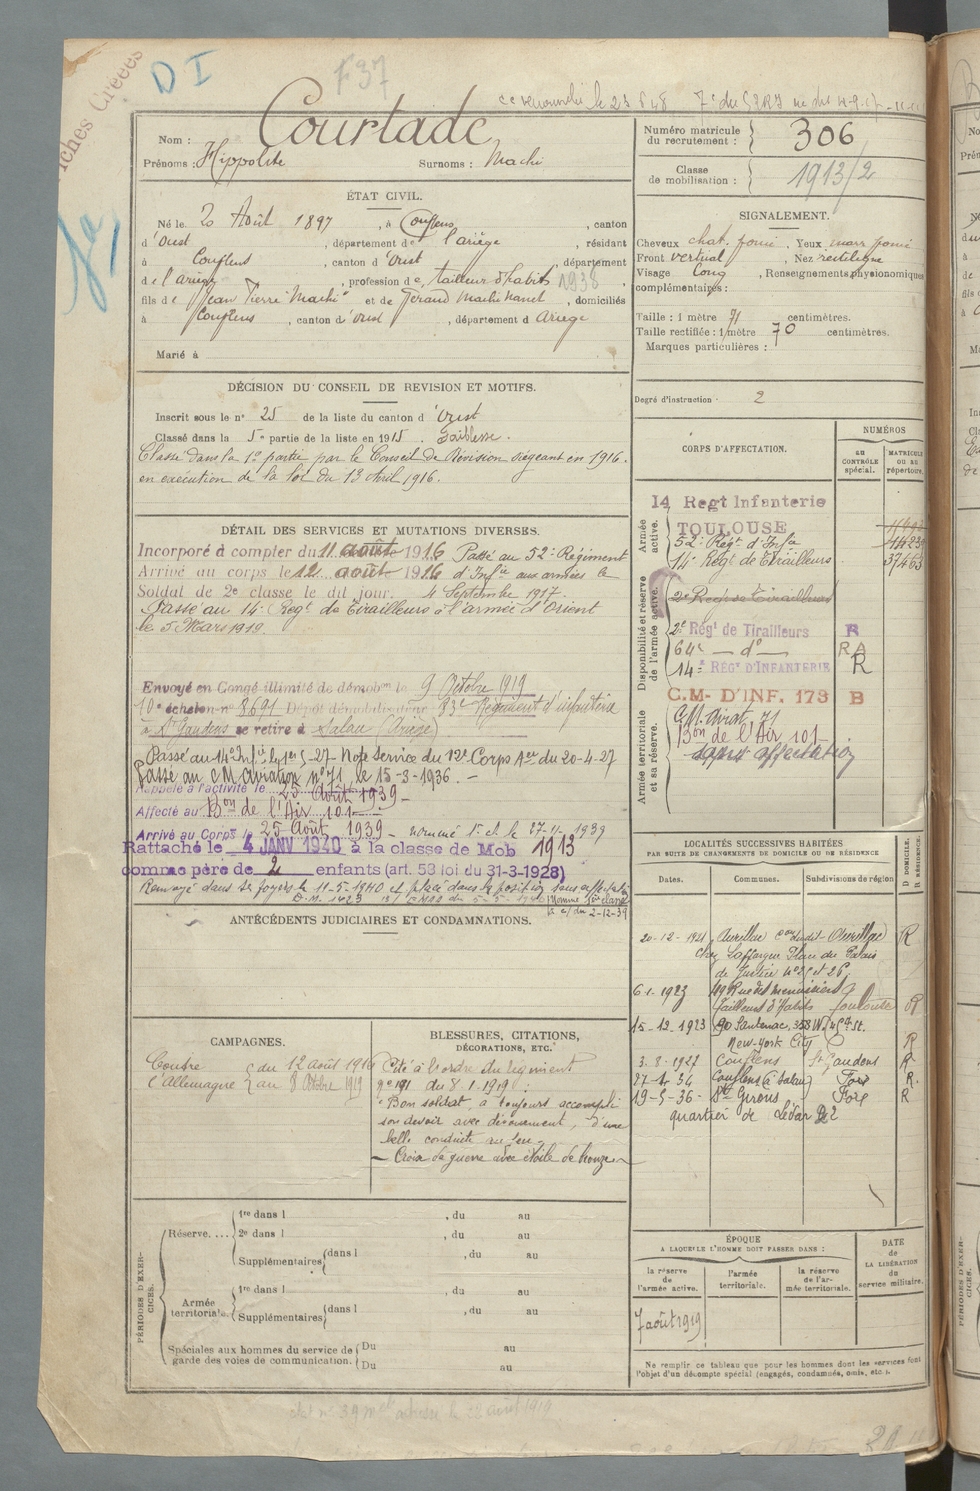 Fiches Créées
D I
F37
Nom : Courtade
Prénoms : Hippolite Surnoms : Machi
Numéro matricule du recrutement : 306
Classe de mobilisation : 1913/2
ÉTAT CIVIL.
Né le 20 Août 1897, à Couflens, canton
d'Oust, département de l'ariège, résidant
à Couflens, canton d'Oust, département
de l'ariège, profession de tailleur d'habits 1938,
fils de Jean Pierre "Machi" et de, domiciliés
à Couflens, canton d'oust, département d Ariège
Marié à
SIGNALEMENT.
Cheveux chat. foncé, Yeux marr foncé
Front vertical, Nez rectiligne
Visage Long, Renseignements physionomiques
complémentaires :
Taille : 1 mètre 71 centimètres.
Taille rectifiée : 1 mètre 70 centimètres.
Marques particulières :
Degré d'instruction · 2
DÉCISION DU CONSEIL DE REVISION ET MOTIFS.
Inscrit sous le n° 25 de la liste du canton d'Oust
Classé dans la 5e partie de la liste en 1915. Faiblesse.
Classé dans la 1e partie par le Conseil de Révision siégeant en 1916.
en execution de la loi du 13 Avril 1916.
DÉTAIL DES SERVICES ET MUTATIONS DIVERSES.
Incorporé à compter du 11 août 1916 Passé au 52e Régiment
Arrivé au corps le 12 août 1916 d'Infie aux armées le
Soldat de 2e classe le dit jour. 4 Septembre 1917.
Passé au 14e Régt de Tirailleurs à l'armée d'Orient
le 5 Mars 1919.
Envoyé en Congé illimité de démobon le 9 Octobre 1919
10e échelon n° 8691 Dépôt démobilisateur 83e Régiment d'infanterie
à St Gaudens se retire à Salau (Ariège)
Passé au 14e Infie le 1er 5-27. Note Service du 12e Corps Aée du 20-4-27
Passé au C.M. aviation n° 71, le 15-3-1936. -
Rappelé à l'activité le 25 Août 1939 -
Affecté au Bon de l'Air 101 -
Arrivé au Corps le 25 Août 1939 - nommé 1e cl. le 27-11-1939
Rattaché le 4 JANV 1940 à la classe de Mob 1913
comme père de 2 enfants (art. 58 loi du 31-3-1928)
Renvoyé dans ses foyers le 11-5-1940 et placé dans la position sans affectation
CORPS D'AFFECTATION.
NUMÉROS
AU CONTRÔLE spécial.
MATRICULE OU DE répertoire.
Armée active.
14 Regt Infanterie
TOULOUSE
52e Régt d'Infie
14e Régt de Tirailleurs 37463
Disponibilité et réserve de l'armée active.
2e Regt de Tirailleurs
2e Régt de Tirailleurs R
64e — do — RA
14e RÉGT D'INFANTERIE R
C.M- D'INF. 173 B
Armée territoriale et sa réserve.
C.M. Aviat. 71
Bon de l'Air 101
sans affectation
LOCALITÉS SUCCESSIVES HABITÉES
PAR SUITE DE CHANGEMENTS DE DOMICILE OU DE RÉSIDENCE
D DOMICILE. R RÉSIDENCE.
Dates. Communes. Subdivisions de région
20-12-1921 Aurillac Aurillac R
chez Laffargue Place du Palais
de Justice n° 25 et 26
6-1-1923 49 Rue des menuisiers
Tailleurs d'Habits Toulouse R
15-12-1923 358 W. 45th St.
New-York City R
3-8-1927 Couflens St Gaudens R
27-4-34 Couflens (à Salau) Foix R.
19-5-36 - St Girons Foix R
quartier de Lédar
ANTÉCÉDENTS JUDICIAIRES ET CONDAMNATIONS.
CAMPAGNES.
Contre l'Allemagne { du 12 août 1916
au 8 Octobre 1919
BLESSURES, CITATIONS,
DÉCORATIONS, ETC.
Cité à l'ordre du régiment
n° 191 du 8-1-1919 :
"Bon soldat, a toujours accompli
son devoir avec dévouement, d'une
belle conduite au feu."
- Croix de guerre avec étoile de bronze -
PÉRIODES D'EXERCICES.
Réserve.... 1re dans l , du au
2e dans l , du au
Supplémentaires dans l , du au
Armée territoriale. 1re dans l , du au
Supplémentaires dans l , du au
Spéciales aux hommes du service de garde des voies de communication. Du au
Du au
ÉPOQUE
A LAQUELLE L'HOMME DOIT PASSER DANS :
la réserve de l'armée active.
l'armée territoriale.
la réserve de l'armée territoriale.
DATE de LA LIBÉRATION du service militaire.
7 août 1919
Ne remplir ce tableau que pour les hommes dont les services font
l'objet d'un décompte spécial (engagés, condamnés, omis, etc.).